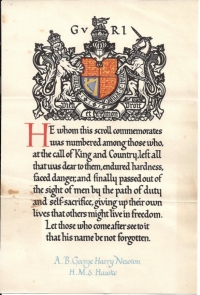 G V R I
HE whom this scroll commemorates
was numbered among those who,
at the call of King and Country, left all
that was dear to them, endured hardness,
faced danger, and finally passed out of
the sight of men by the path of duty
and self-sacrifice, giving up their own
lives that others might live in freedom.
Let those who come after see to it
that his name be not forgotten.
A.B. George Harry Newton
H.M.S. Hawke